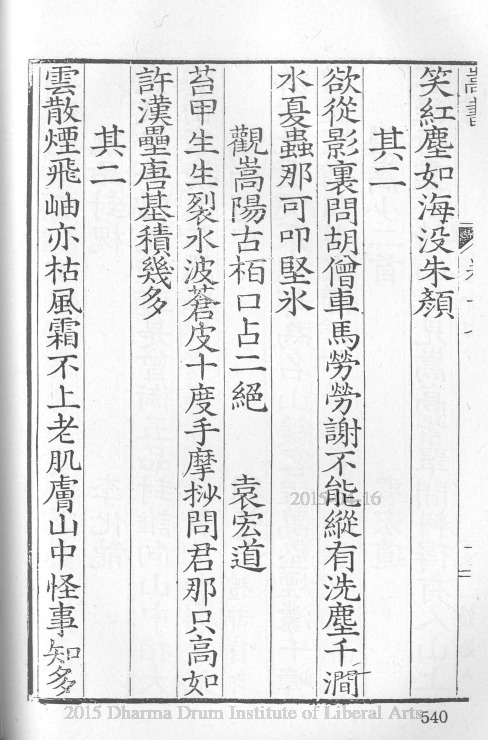 嵩書
笑紅塵如海没朱顏
其二
欲從影裏問胡僧車馬勞勞謝不能縱有洗塵千澗
水夏蟲那可叩堅氷
觀嵩陽古栢口占二絕 袁宏道
苔甲生生裂水波蒼皮十度手摩挱問君那只高如
許漢壘唐基積幾多
其二
雲散煙飛岫亦枯風霜不上老肌膚山中怪事知多
2015-01-16
2015 Dharma Drum Institute of Liberal Arts
540